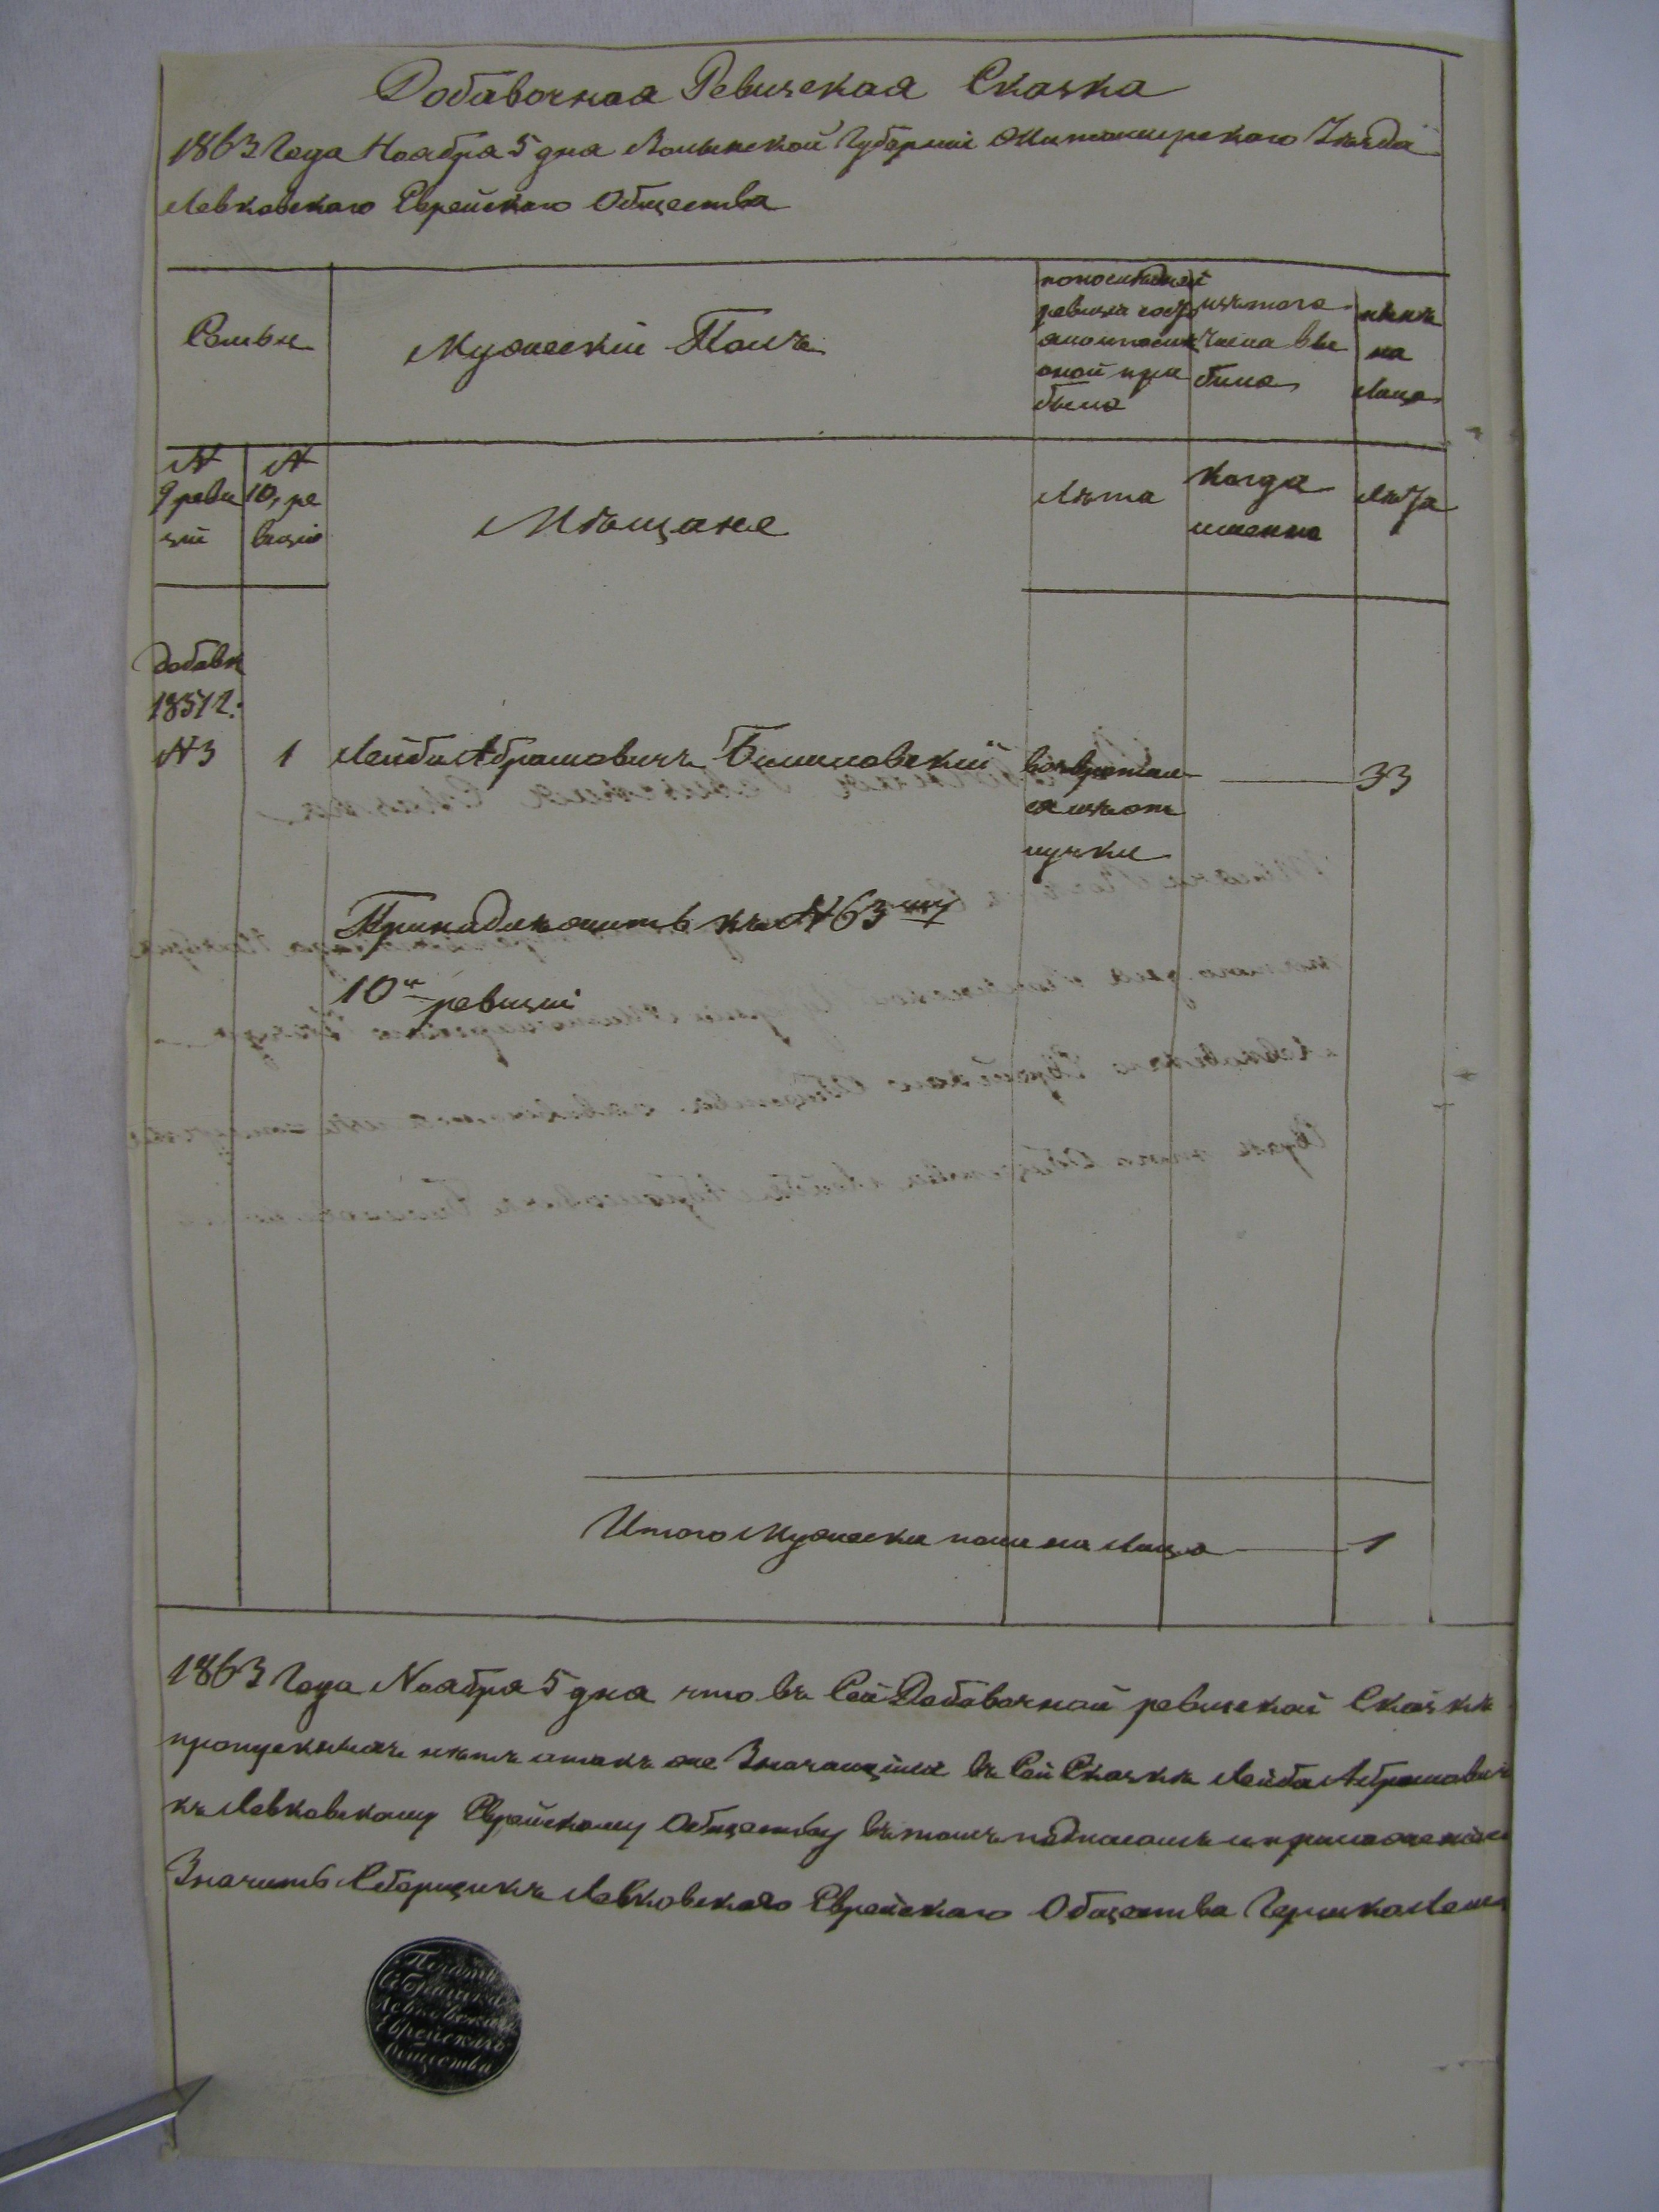 Добавочная Ревизская Сказка
1863 Года Ноября 5 дня Волынской Губернии Житомирского Уезда
Левковского Еврейского Общества
Семьи
Мужеский Полъ
по последней
ревизи состо
было
изъ того
числа вы
было
ныне
на
лицо
N
9 реви
зіи
N
10, ре
визіи
Мѣщане
Лѣта
Когда
именно
Лѣта
Добавк
1851 г.
N 3
1
Лейба Абрамовичъ
возвротил
ся изъ от
лучки
33
Принадлежитъ къ N 63 му
10 й ревизіи
Итого Мужеска пола на лицо
1
1863 Года Ноября 5 дня что въ Сей Добавочной ревизской Сказкѣ
нетъ и такъ же Значащийся въ Сей Сказкѣ Лейба Абрамовичъ
къ Левковскому Еврейскому Обществу въ томъ
Сборщикъ Левковского Еврейского Общества Гершко
Печать
Сборщика
Левковскаго
Еврейскаго
Общества